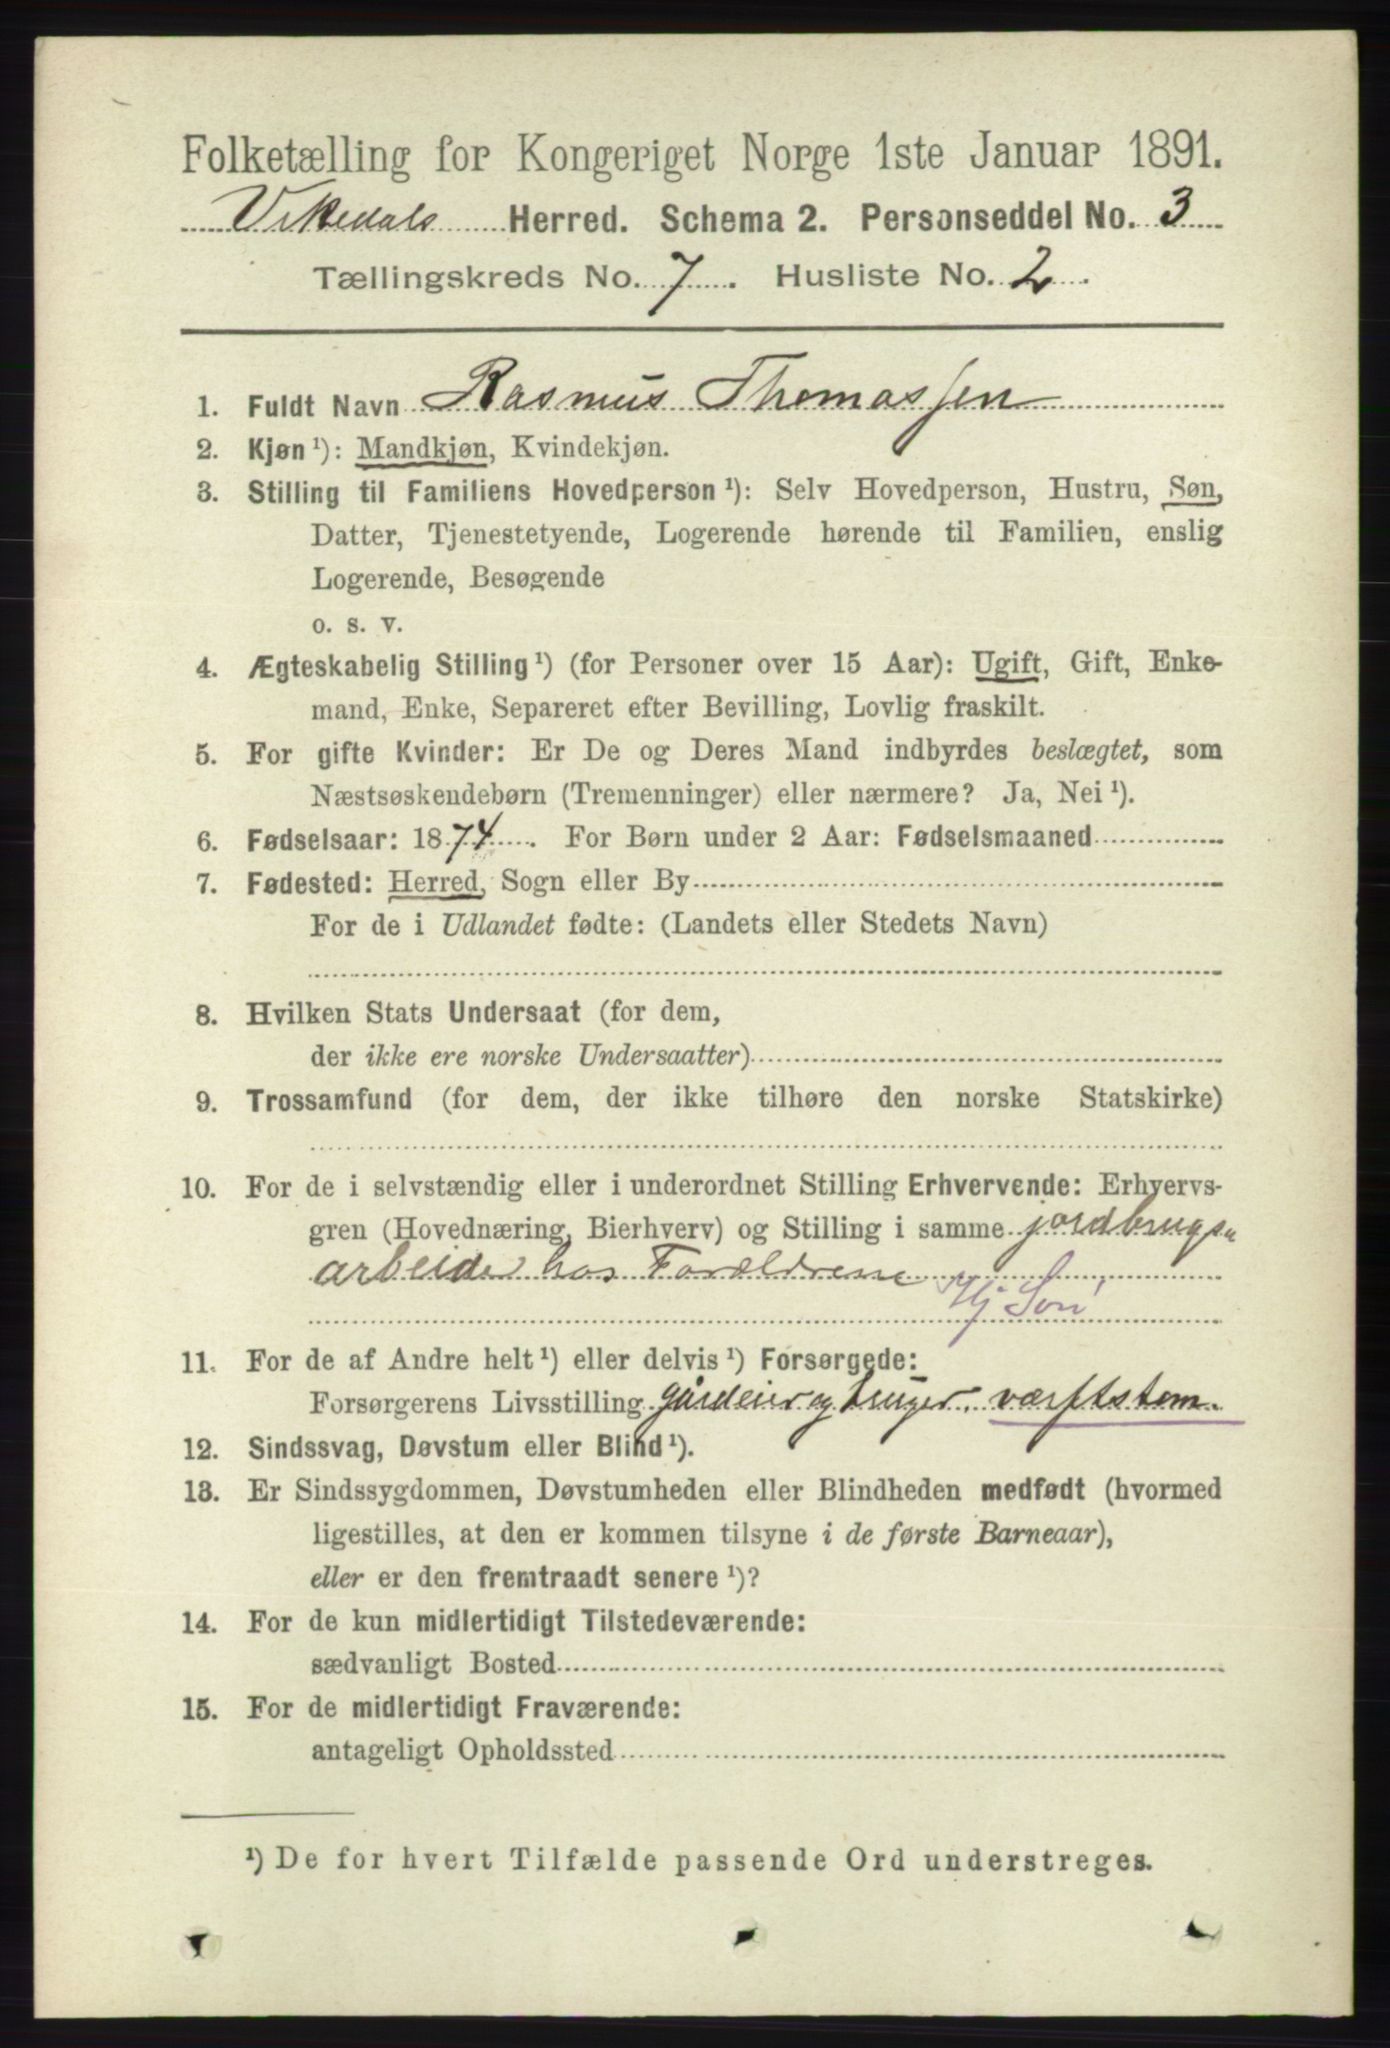 Folketælling for Kongeriget Norge 1ste Januar 1891.
Vikedals Herred. Schema 2. Personseddel No. 3
Tællingskreds No. 7. Husliste No. 2.
1. Fuldt Navn Rasmus Thomassen
2. Kjøn ¹): Mandkjøn, Kvindekjøn.
3. Stilling til Familiens Hovedperson ¹): Selv Hovedperson, Hustru, Søn,
Datter, Tjenestetyende, Logerende hørende til Familien, enslig
Logerende, Besøgende
o. s. v.
4. Ægteskabelig Stilling ¹) (for Personer over 15 Aar): Ugift, Gift, Enke-
mand, Enke, Separeret efter Bevilling, Lovlig fraskilt.
5. For gifte Kvinder: Er De og Deres Mand indbyrdes beslægtet, som
Næstsøskendebørn (Tremenninger) eller nærmere? Ja, Nei ¹).
6. Fødselsaar: 1874. For Børn under 2 Aar: Fødselsmaaned
7. Fødested: Herred, Sogn eller By
For de i Udlandet fødte: (Landets eller Stedets Navn)
8. Hvilken Stats Undersaat (for dem,
der ikke ere norske Undersaatter)
9. Trossamfund (for dem, der ikke tilhøre den norske Statskirke)
10. For de i selvstændig eller i underordnet Stilling Erhvervende: Erhvervs-
gren (Hovednæring, Bierhverv) og Stilling i samme jordbrugs
arbeide hos Forældrene
Hj Søn
11. For de af Andre helt ¹) eller delvis ¹) Forsørgede:
Forsørgerens Livsstilling gårdeier og bruger, værftstøm.
12. Sindssvag, Døvstum eller Blind ¹).
13. Er Sindssygdommen, Døvstumheden eller Blindheden medfødt (hvormed
ligestilles, at den er kommen tilsyne i de første Barneaar),
eller er den fremtraadt senere ¹)?
14. For de kun midlertidigt Tilstedeværende:
sædvanligt Bosted
15. For de midlertidigt Fraværende:
antageligt Opholdssted
¹) De for hvert Tilfælde passende Ord understreges.